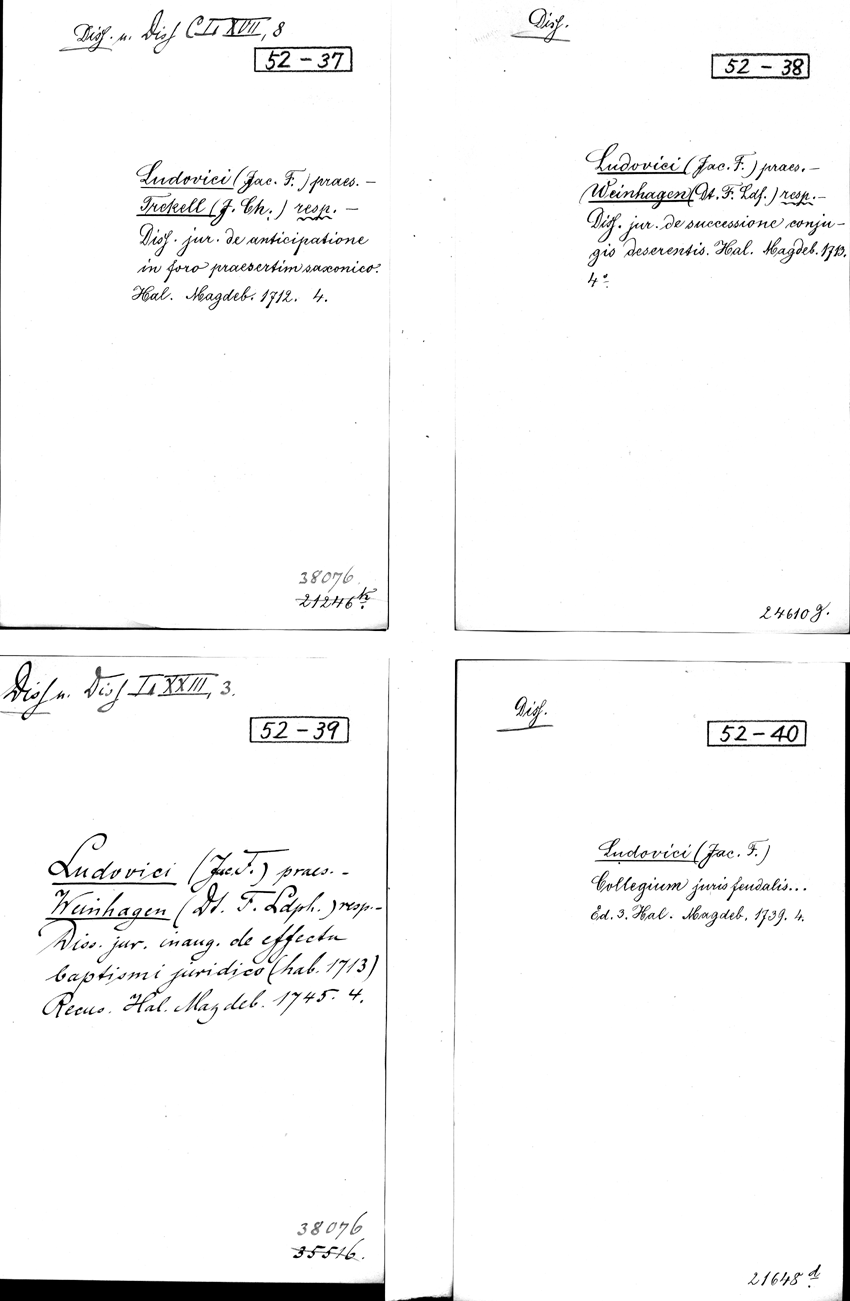 Diss. u. Diss C I. XVII, 8
52-37
Ludovici (Jac. F.) praes. -
Trekell (J. Ch.) resp. -
Diss. jur. de anticipatione
in foro praesertim saxonico.
Hal. Magdeb. 1712. 4.
38076.
21246 k.
Diss.
52-38
Ludovici (Jac. F.) praes. -
Weinhagen (Dt. F. Ldf.) resp. -
Diss. jur. de successione conju-
gis deserentis. Hal. Magdeb. 1713.
4°
24610 g.
Diss u. Diss I. XXIII, 3.
52-39
Ludovici (Jac. F.) praes. -
Weinhagen (Dt. F. Ldph.) resp. -
Diss. jur. inaug. de effectu
baptismi juridico (hab. 1713)
Recus. Hal. Magdeb. 1745. 4.
38076
35516.
Diss.
52-40
Ludovici (Jac. F.)
Collegium juris feudalis...
Ed. 3. Hal. Magdeb. 1739. 4.
21648 d.